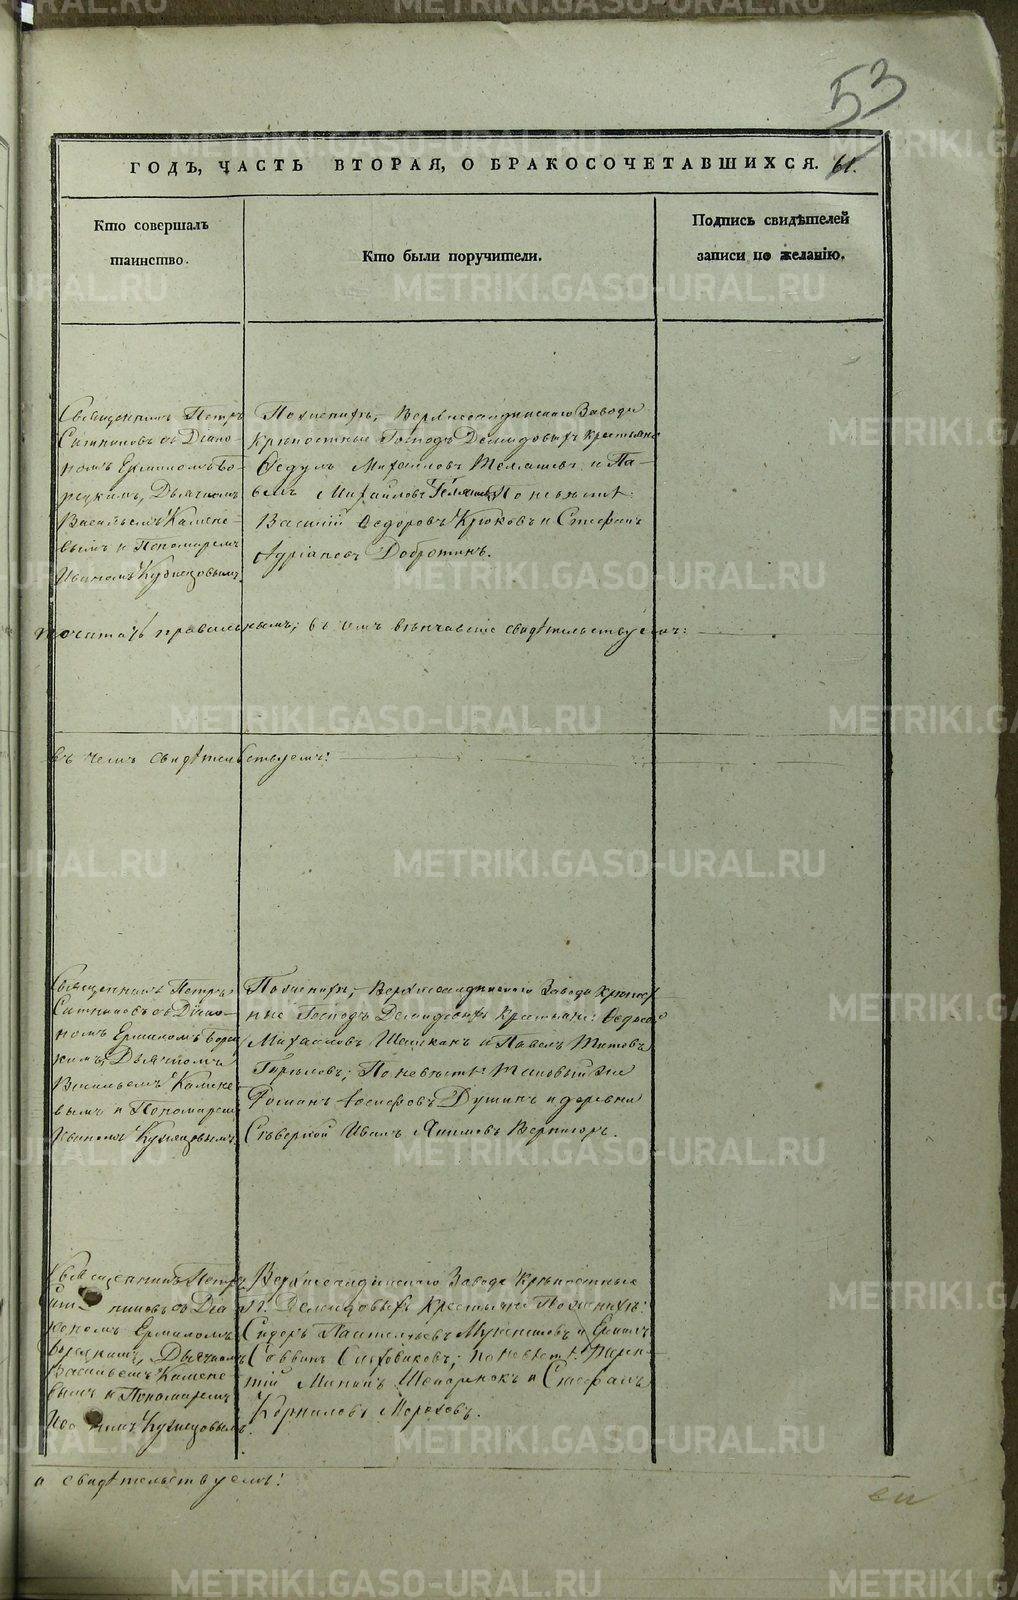 53
ГОДЪ, ЧАСТЬ ВТОРАЯ, О БРАКОСОЧЕТАВШИХСЯ. 61.
Кто совершалъ
таинство.
Кто были поручители.
Подпись свидѣтелей
записи по желанію.
Священникъ Петръ
Ситниковъ съ Діако-
номъ Ермиломъ Бо-
рецкимъ, Дьячкомъ
Васильемъ Камене-
вымъ и Пономаремъ
Иваномъ Кузнецовымъ.
По женихѣ, Верхнесалдинскаго Завода
крѣпостные Господъ Демидовыхъ крестьяне
Ѳедулъ Михайловъ и Па-
велъ Михайловъ По невѣстѣ:
Василій Ѳедоровъ Крюковъ и Стефанъ
Адріановъ Добротинъ.
почитать правильнымъ; въ чемъ свидѣтельствуемъ:
въ чемъ свидѣтельствуемъ:
Священникъ Петръ
Ситниковъ съ Діако-
номъ Ермиломъ Борец-
кимъ, Дьячкомъ
Васильемъ Камене-
вымъ и Пономаремъ
Иваномъ Кузнецовымъ.
По женихѣ, Верхнесалдинскаго Завода крѣпост-
ные Господъ Демидовыхъ крестьяне:
Михайловъ и Павелъ Титовъ
По невѣстѣ: таковый же
Романъ Іосифовъ Душинъ и деревни
Сѣверной Иванъ Акимовъ
Священникъ Петръ
Ситниковъ съ Діа-
кономъ Ермиломъ
Борецкимъ, Дьячкомъ
Васильемъ Камене-
вымъ и Пономаремъ
Иваномъ Кузнецовымъ.
Верхнесалдинскаго Завода крѣпостные
Г. Демидовыхъ крестьяне По женихѣ:
Сидоръ Пантельевъ и Ермилъ
Саввинъ по невѣстѣ: Терен-
тій Мининъ и Стефанъ
Корниловъ Мороховъ.
и свидѣтельствуемъ:
METRIKI.GASO-URAL.RU